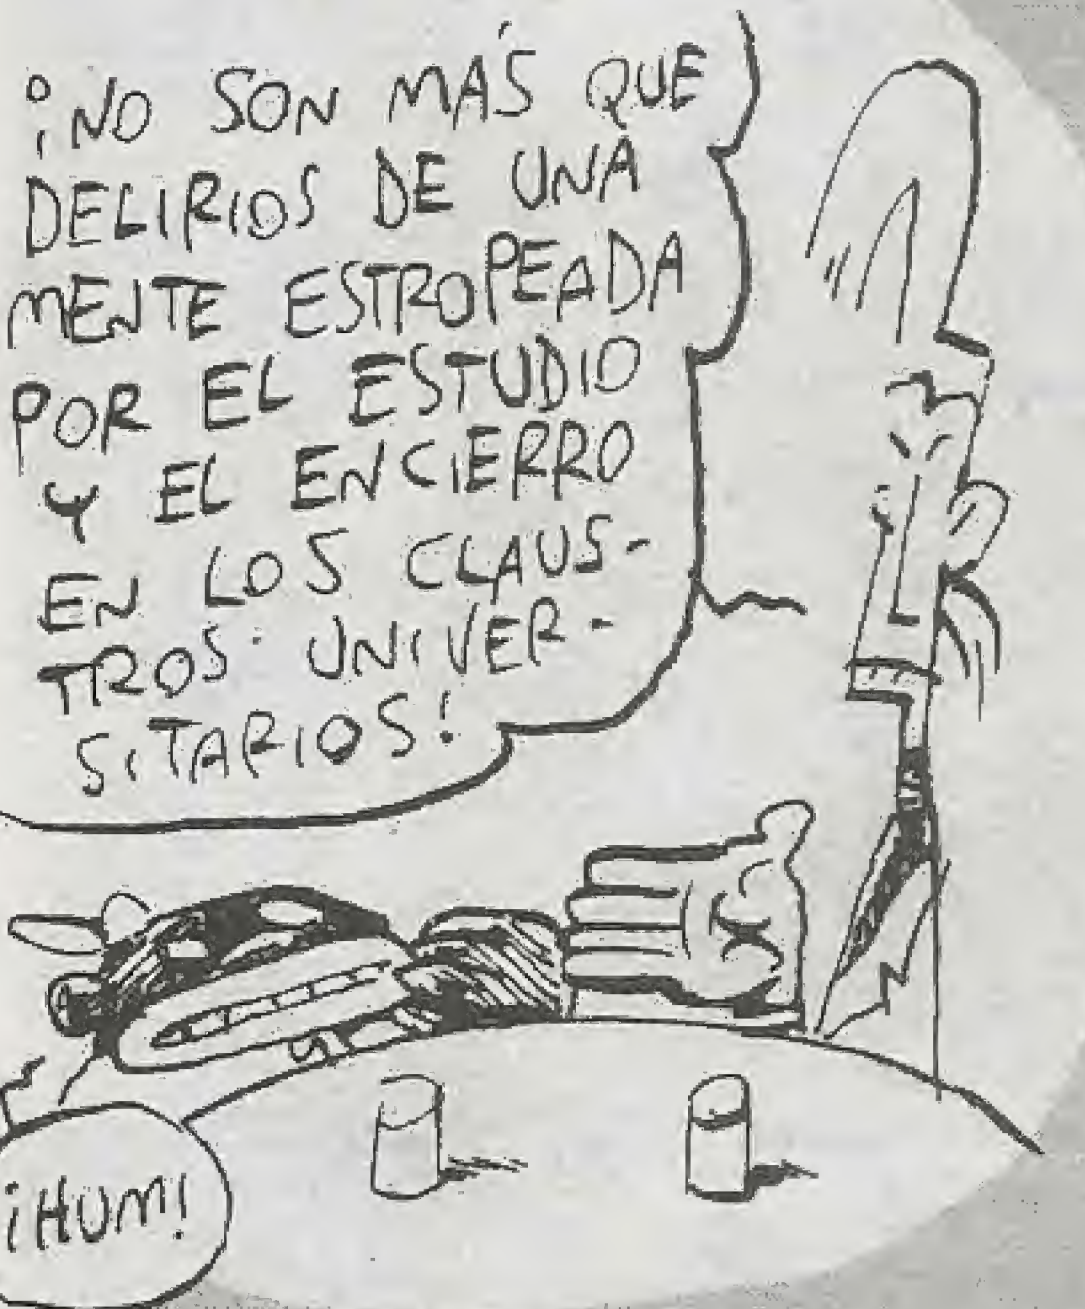 ¡NO SON MÁS QUE
DELIRIOS DE UNA
MENTE ESTROPEADA
POR EL ESTUDIO
Y EL ENCIERRO
EN LOS CLAUS-
TROS UNIVER-
SITARIOS!
¡HUM!